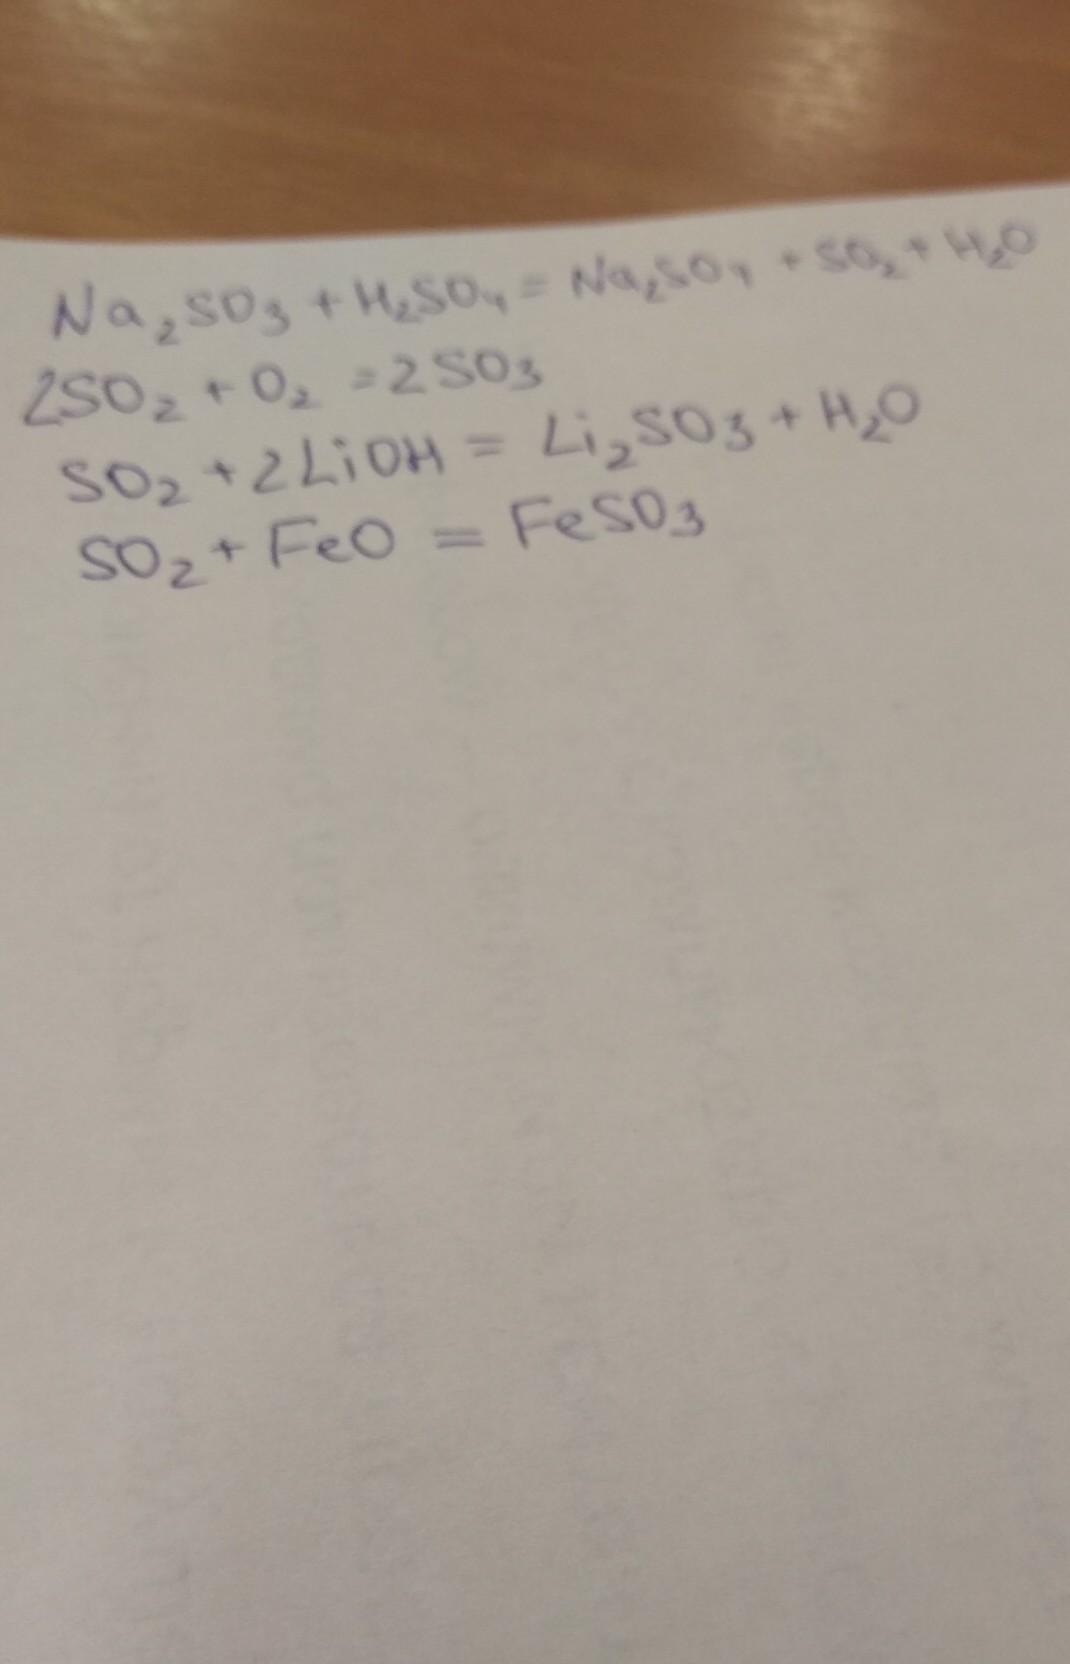 Na₂SO₃ + H₂SO₄ = Na₂SO₄ + SO₂ + H₂O
2SO₂ + O₂ = 2SO₃
SO₂ + 2LiOH = Li₂SO₃ + H₂O
SO₂ + FeO = FeSO₃